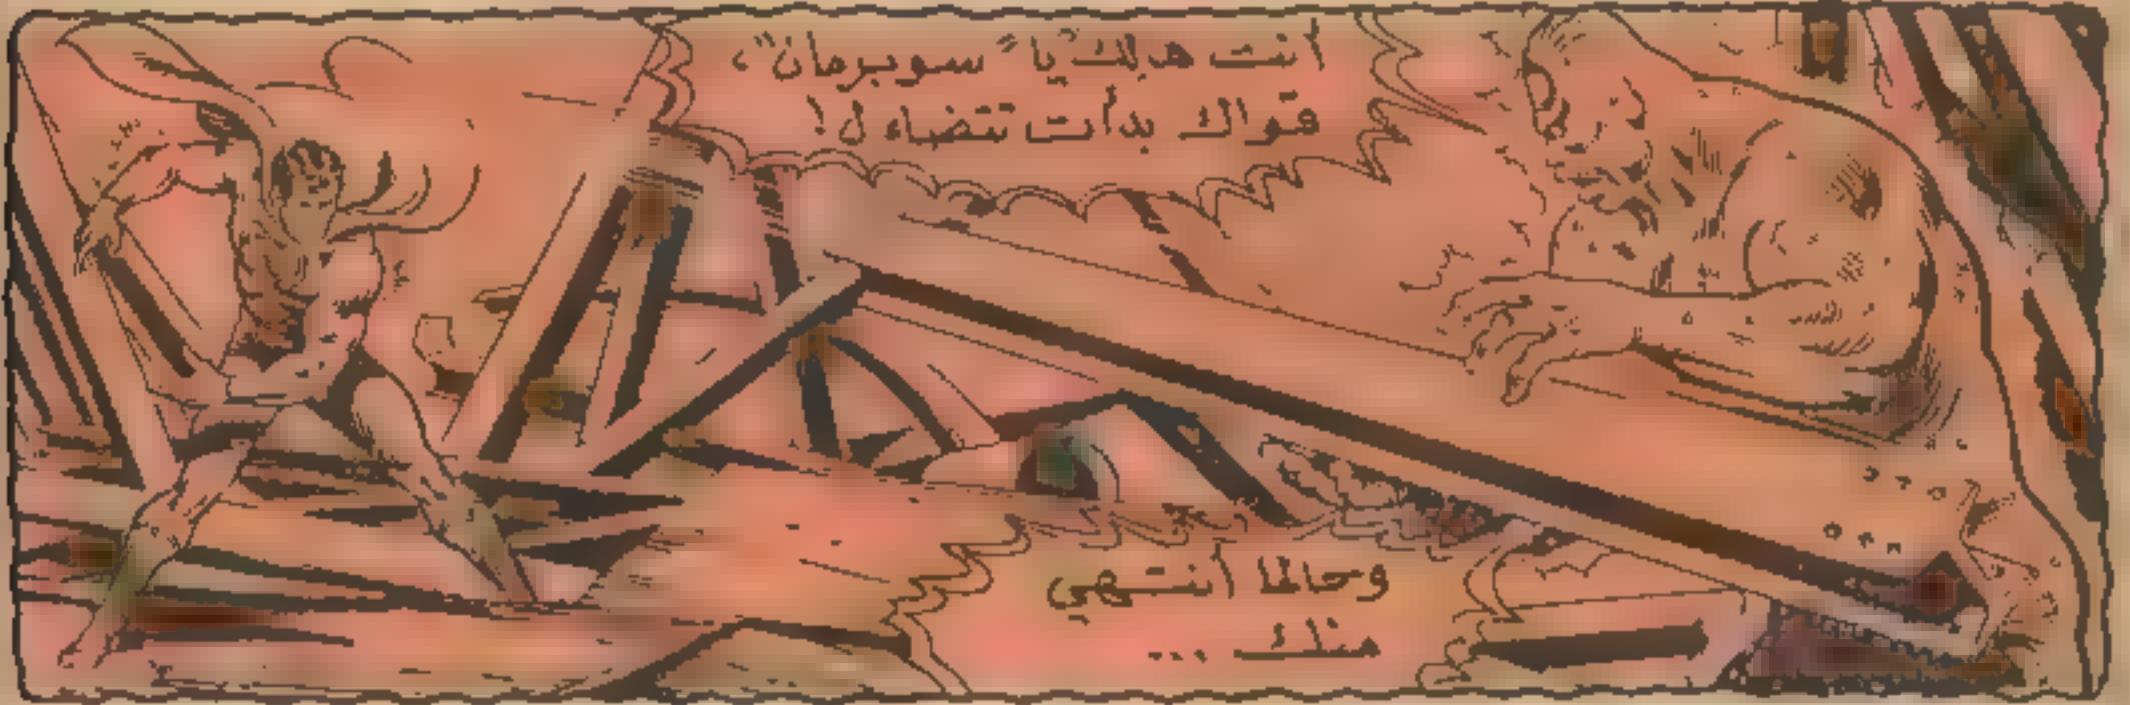 أنت هدلك يا "سوبرمان"،
قواك بدأت تتضاءل!
وحالما أنتهي
منك ...